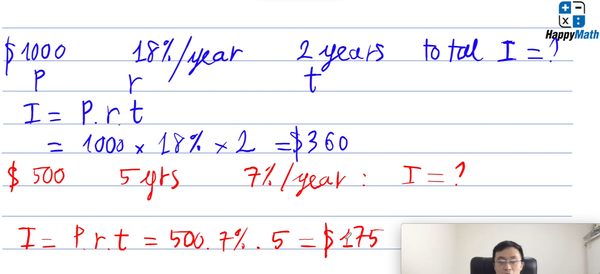 HappyMath
$1000 18%/year 2 years total I = ?
P r t
I = P.r.t
= 1000 × 18% × 2 = $360
$500 5 yrs 7%/year : I = ?
I = P.r.t = 500.7%.5 = $175